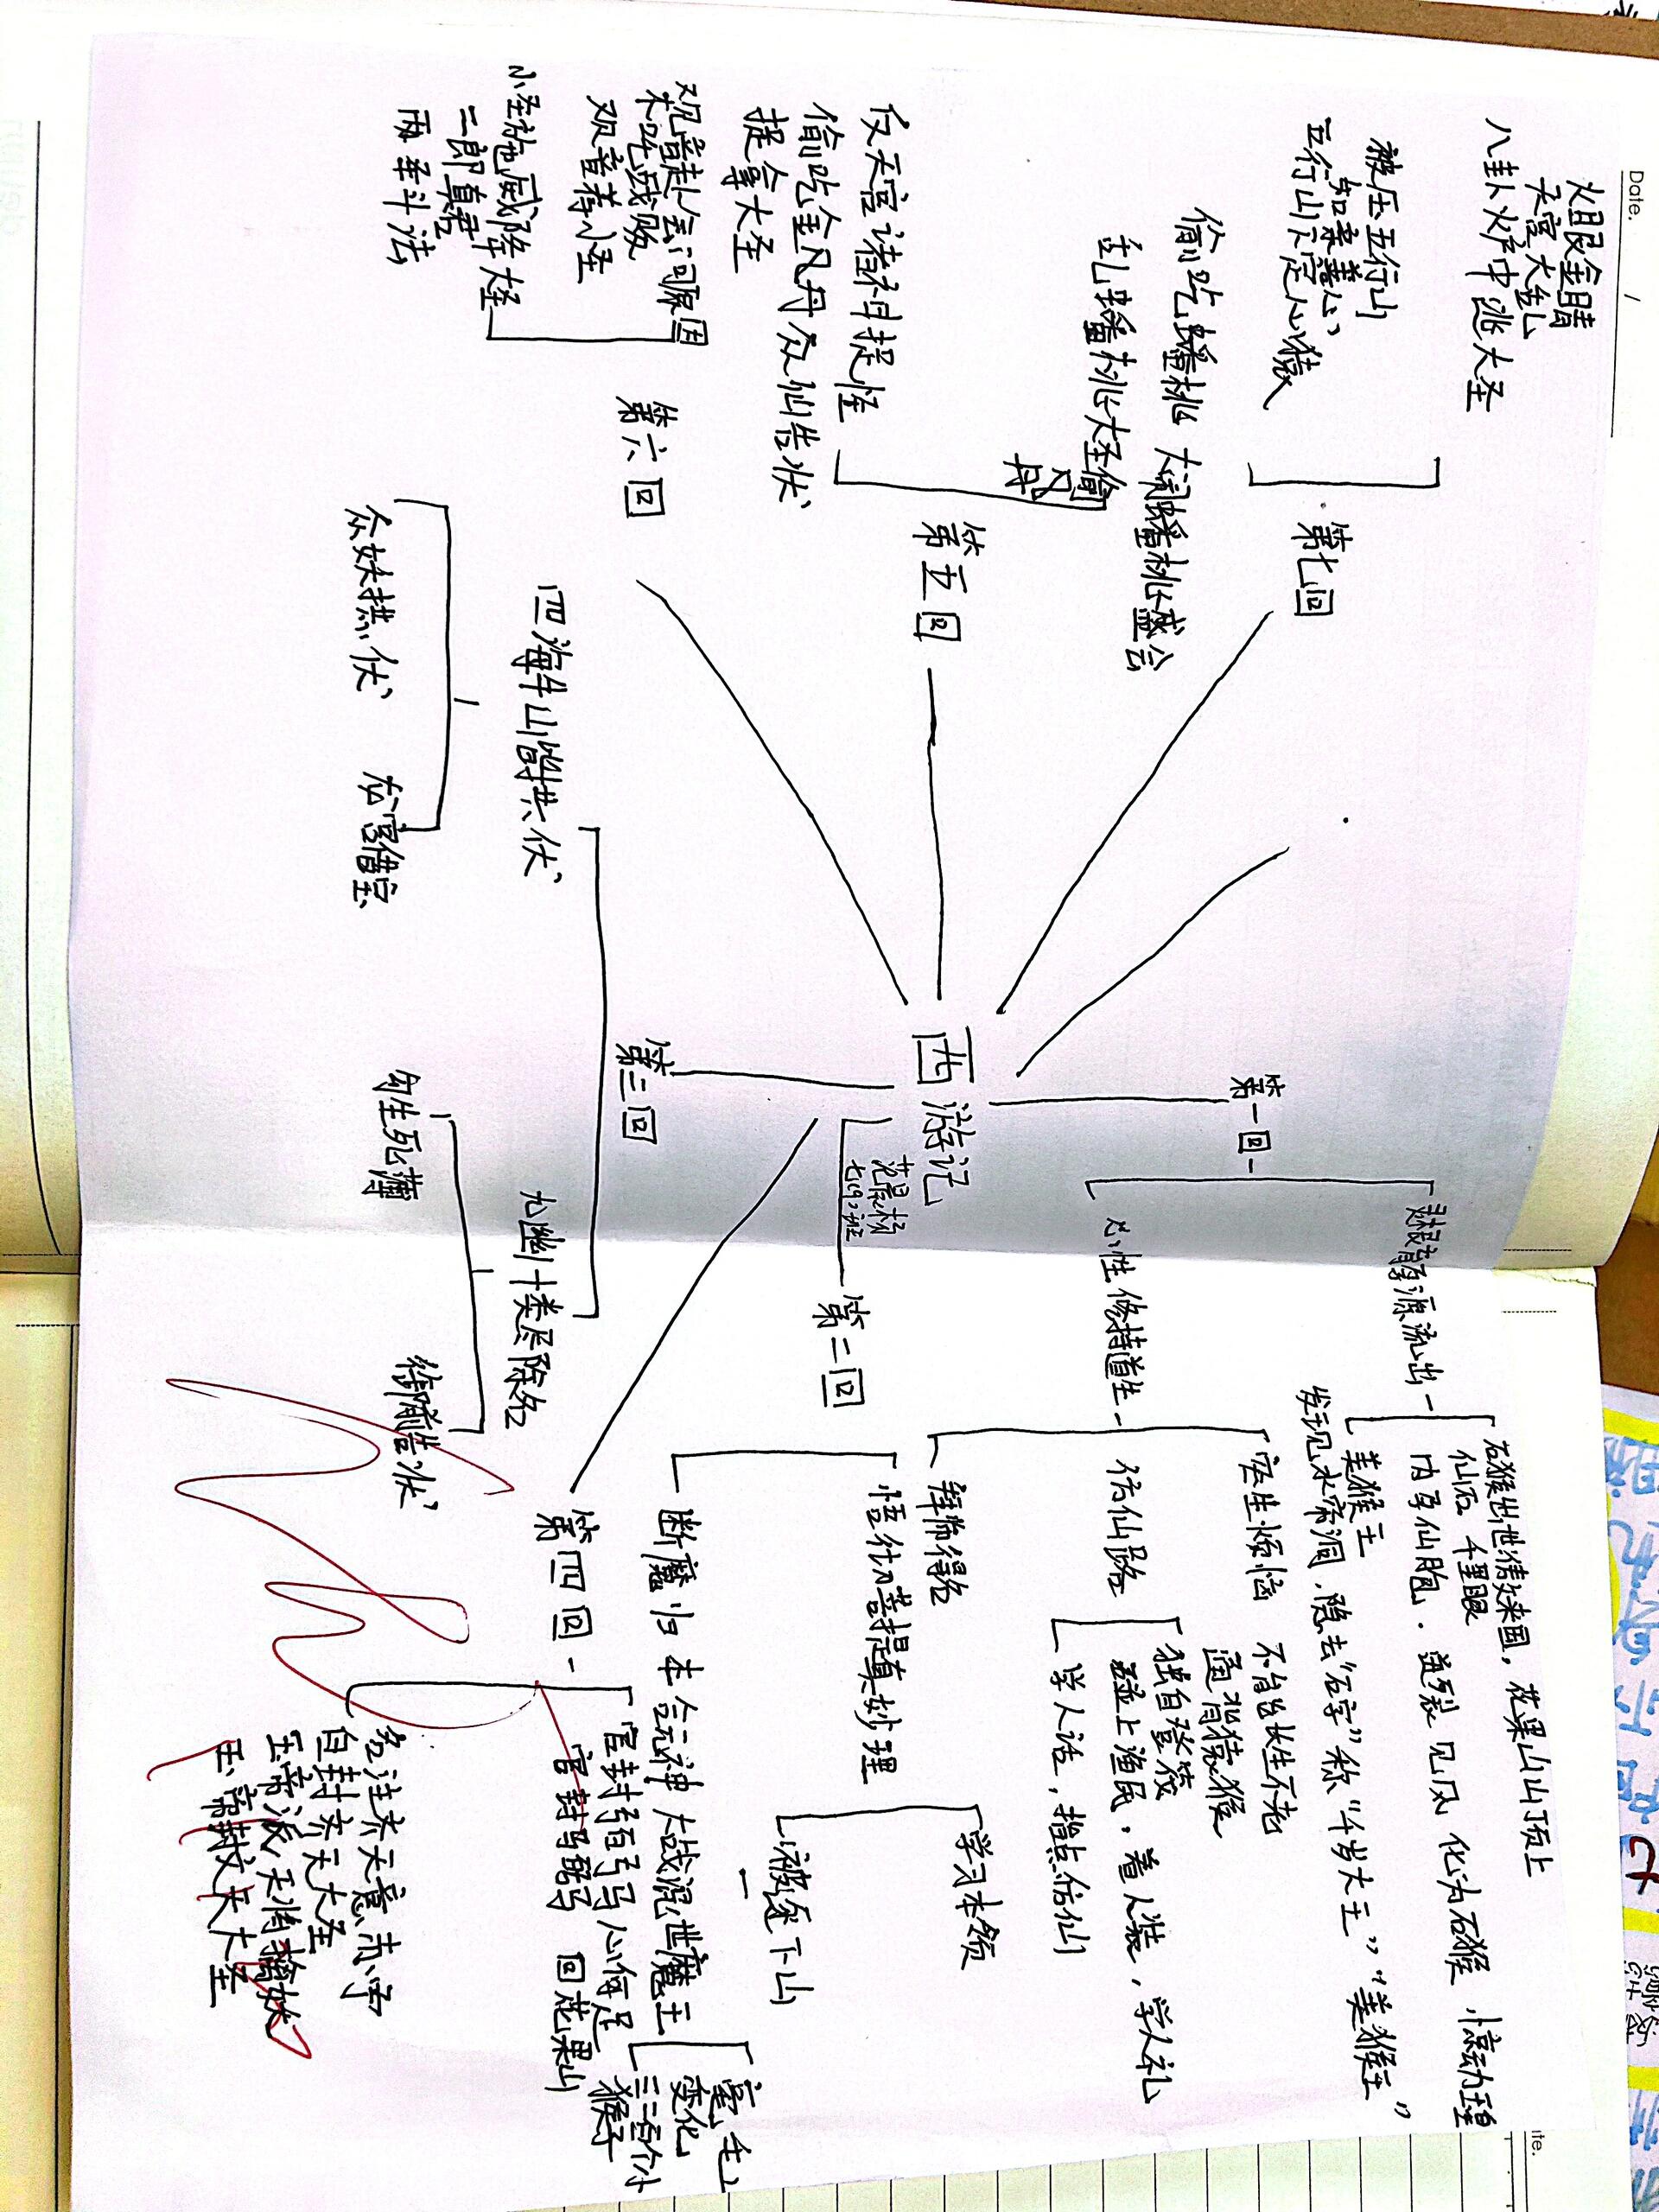 西游记
七(9)班
第一回
育孕源流出
石猴出世傲来国，花果山山顶上
仙石 千里眼
内孕仙胞．迸裂 见风 化为石猴，惊动
美猴王
发现水帘洞，隐去“石字”称“千岁大王”“美猴王”
心性修持道生
宏生烦恼 不肖长生不老
通背猿猴
访仙路
独自登筏
上渔民，着人装，学人礼
学人话，指点访仙
拜师得名
第二回
悟彻菩提真妙理
学习本领
被逐下山
断魔归本合元神
大战混世魔王
毫毛
变化
三二百个小
猴子
第三回
四海千山皆拱伏
众妖拱伏
龙宫借宝
九幽十类尽除名
勾生死薄
状
第四回
官封弼马心何足
官封马 回花果山
名注齐天意未宁
自封齐天大圣
玉帝派天将擒妖
玉帝封齐天大圣
第五回
乱蟠桃大圣偷
丹
偷吃蟠桃 大闹蟠桃盛会
反天宫诸神捉怪
偷吃金丹众仙告状
捉拿大圣
第六回
观音赴会问原因
木吒战败
观音荐小圣
小圣施威降大圣
二郎真君
两番斗法
第七回
八卦炉中逃大圣
天宫大乱
火眼金睛
五行山下定心猿
被压五行山
Date. /